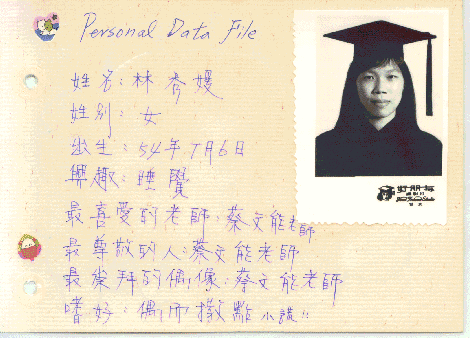 Personal Data File
姓名：林秀媛
姓別：女
出生：54年7月6日
興趣：睡覺
最喜愛的老師：蔡文能老師
最尊敬的人：蔡文能老師
最崇拜的偶像：蔡文能老師
嗜好：偶而撒點小謊!!
好朋友